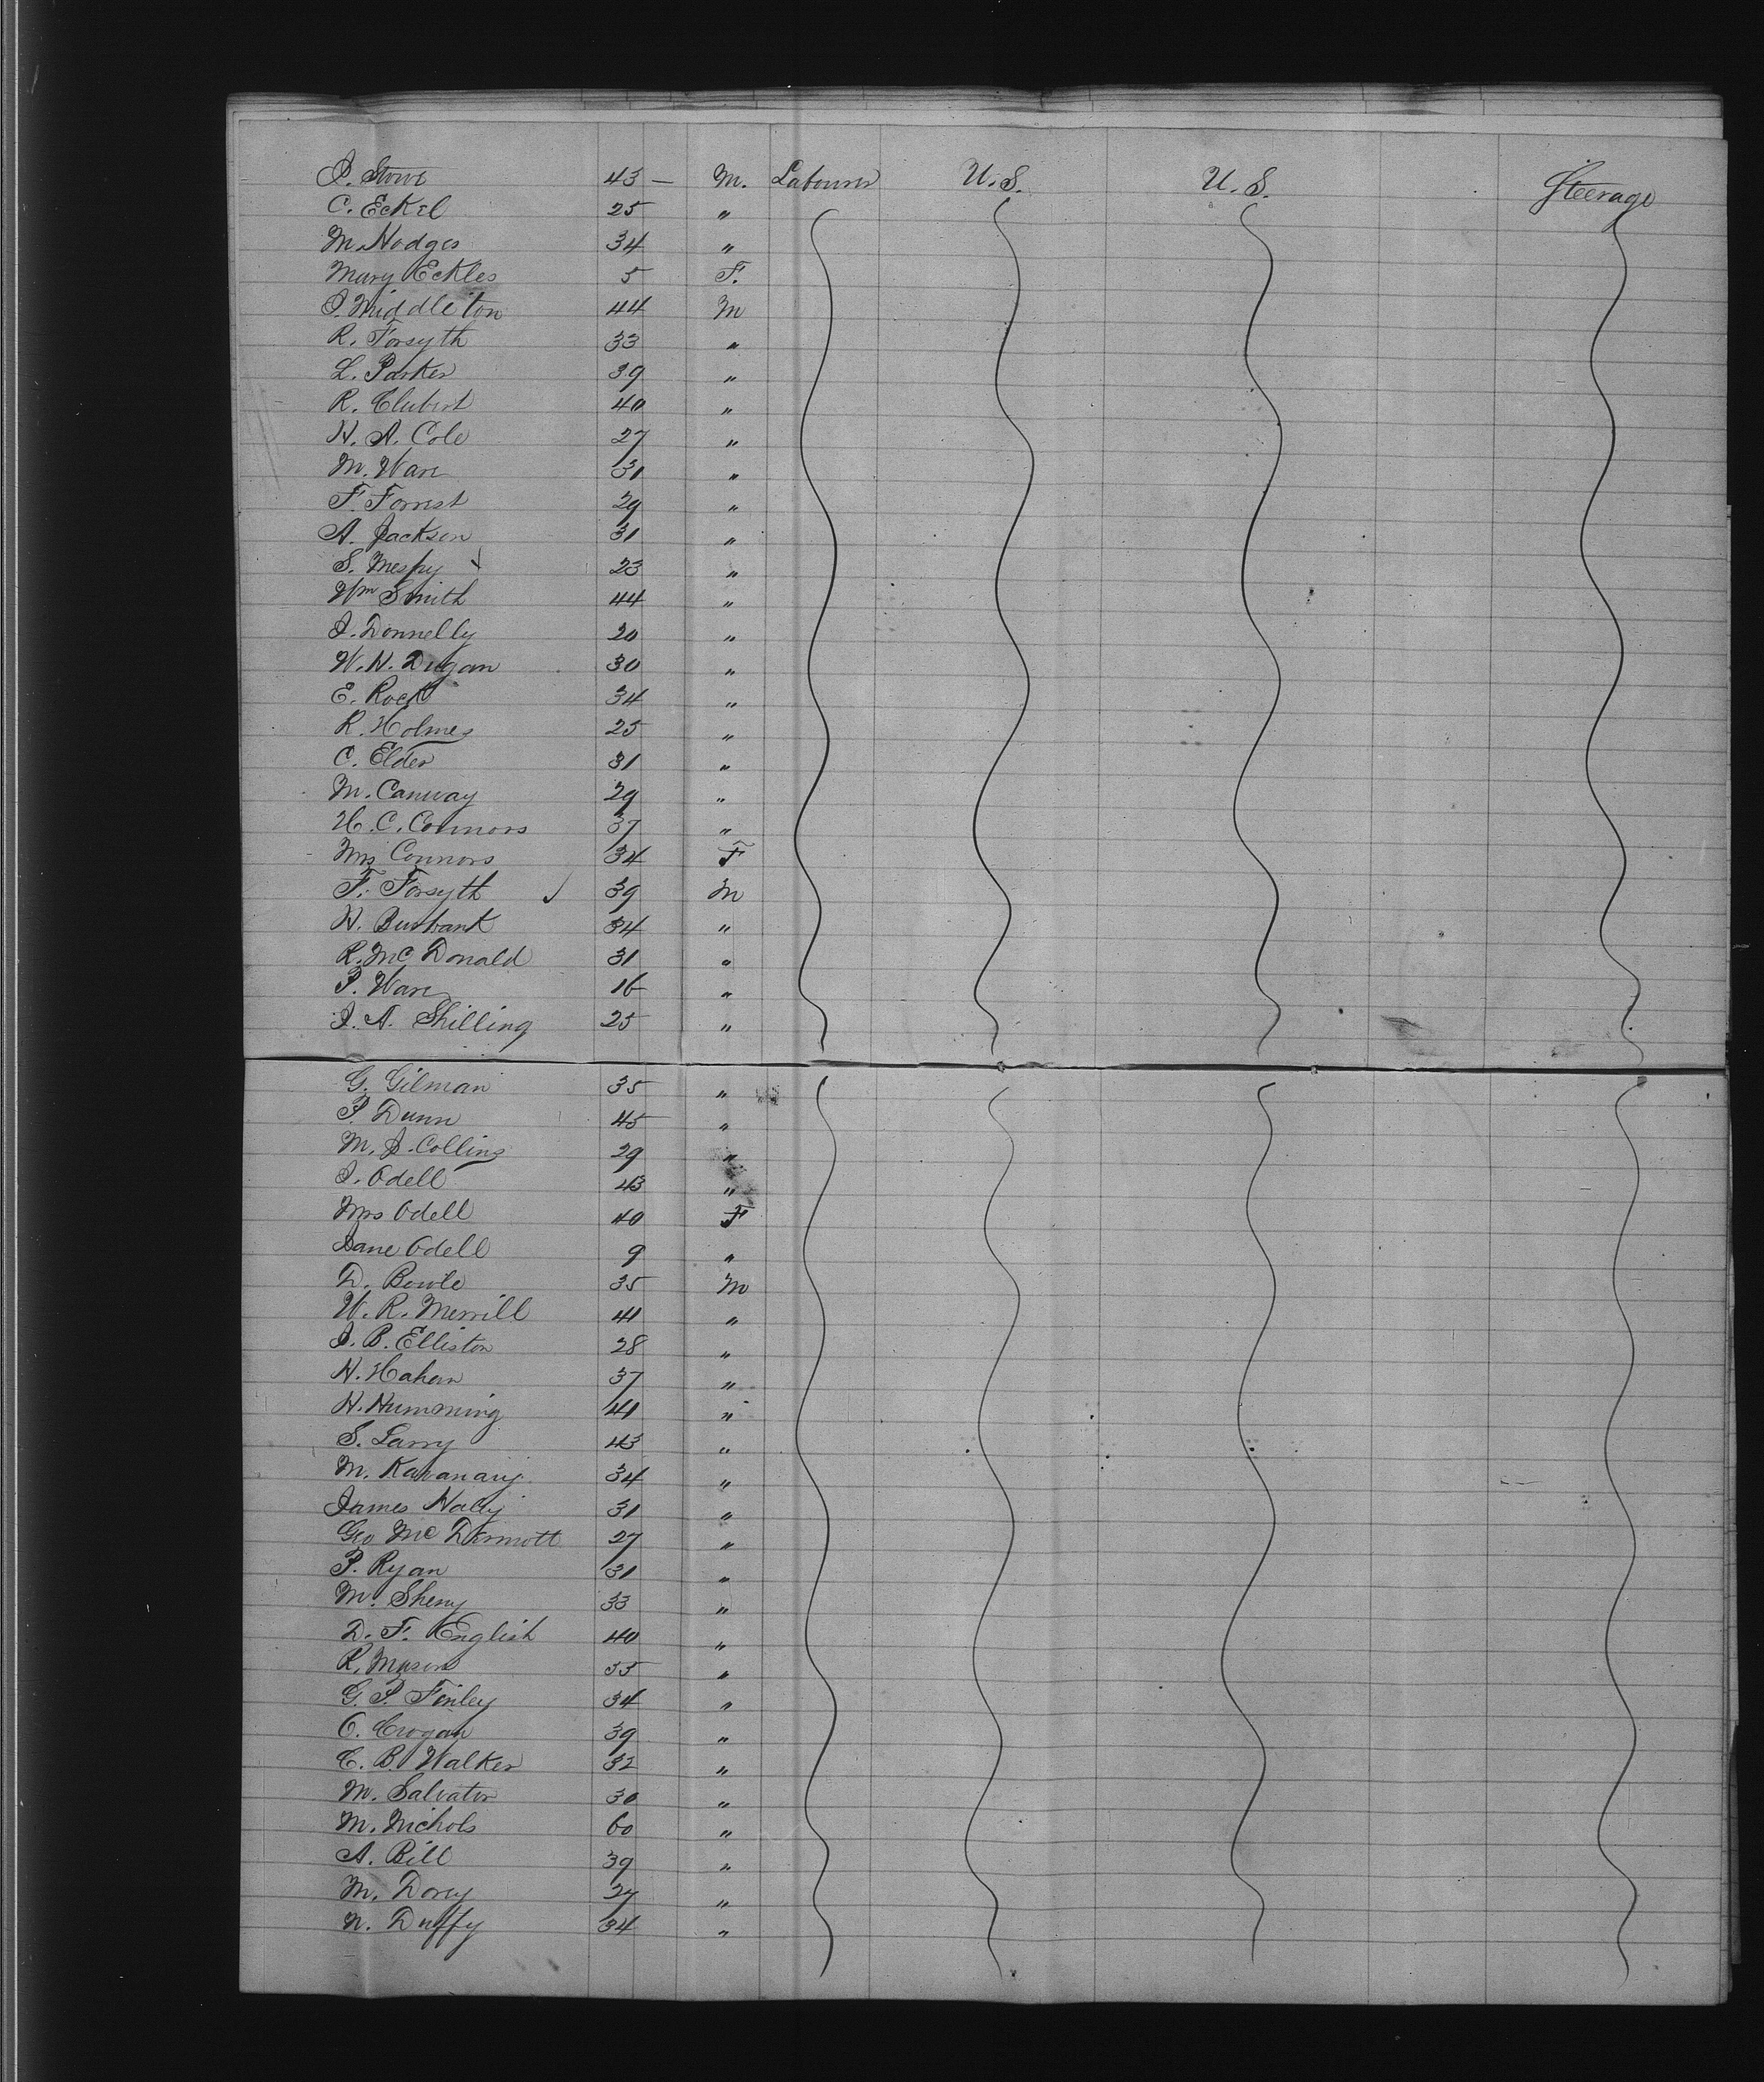 J. Stowe 43 — M. Labourer U.S. U.S. Steerage
C. Eckel 25 "
M. Hodges 34 "
Mary Eckles 5 F.
J. Middleton 44 M
R. Forsyth 33 "
L. Parker 39 "
R. Clubert 40 "
H. A. Cole 27 "
M. Ware 31 "
F. Forrest 29 "
A. Jackson 31 "
S. 23 "
Wm Smith 44 "
J. Donnelly 20 "
W. H. Dugan 30 "
E. Rock 34 "
R. Holmes 25 "
C. Elder 31 "
M. Canway 29 "
H. C. Connors 37 "
Mrs Connors 34 F
F. Forsyth 39 M
H. Burbank 34 "
R. Mc Donald 31 "
P. Ware 16 "
J. A. Shilling 25 "
G. Gilman 35 "
P. Dunn 45 "
M. J. Collins 29 "
J. Odell 43 "
Mrs Odell 40 F
Jane Odell 9 "
D. 35 M
W. R. Merrill 41 "
J. B. Elliston 28 "
H. Hahan 37 "
H. Humming 41 "
S. Larry 43 "
M. 34 "
James 31 "
Geo Mc Dermott 27 "
P. Ryan 31 "
M. 33 "
D. F. English 40 "
R. Mason 35 "
G. P. Finley 34 "
O. Crogan 39 "
C. B. Walker 32 "
M. Salvator 30 "
M. Nichols 60 "
A. Bill 39 "
M. Dorcy 27 "
N. Duffy 34 "